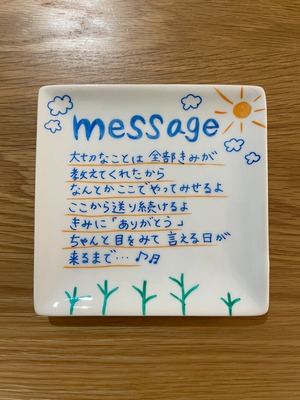 message
大切なことは 全部きみが
教えてくれたから
なんとかここでやってみせるよ
ここから送り続けるよ
きみに「ありがとう」
ちゃんと目をみて 言える日が
来るまで… ♪♬